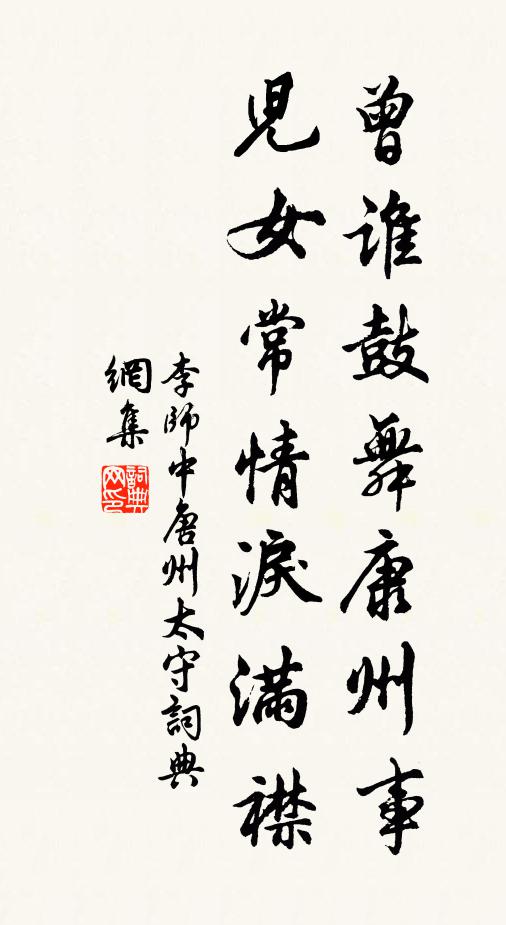 曾誰鼓舞康州事
兒女常情淚滿襟
李師中唐州太守詞典
網集
詞典網印